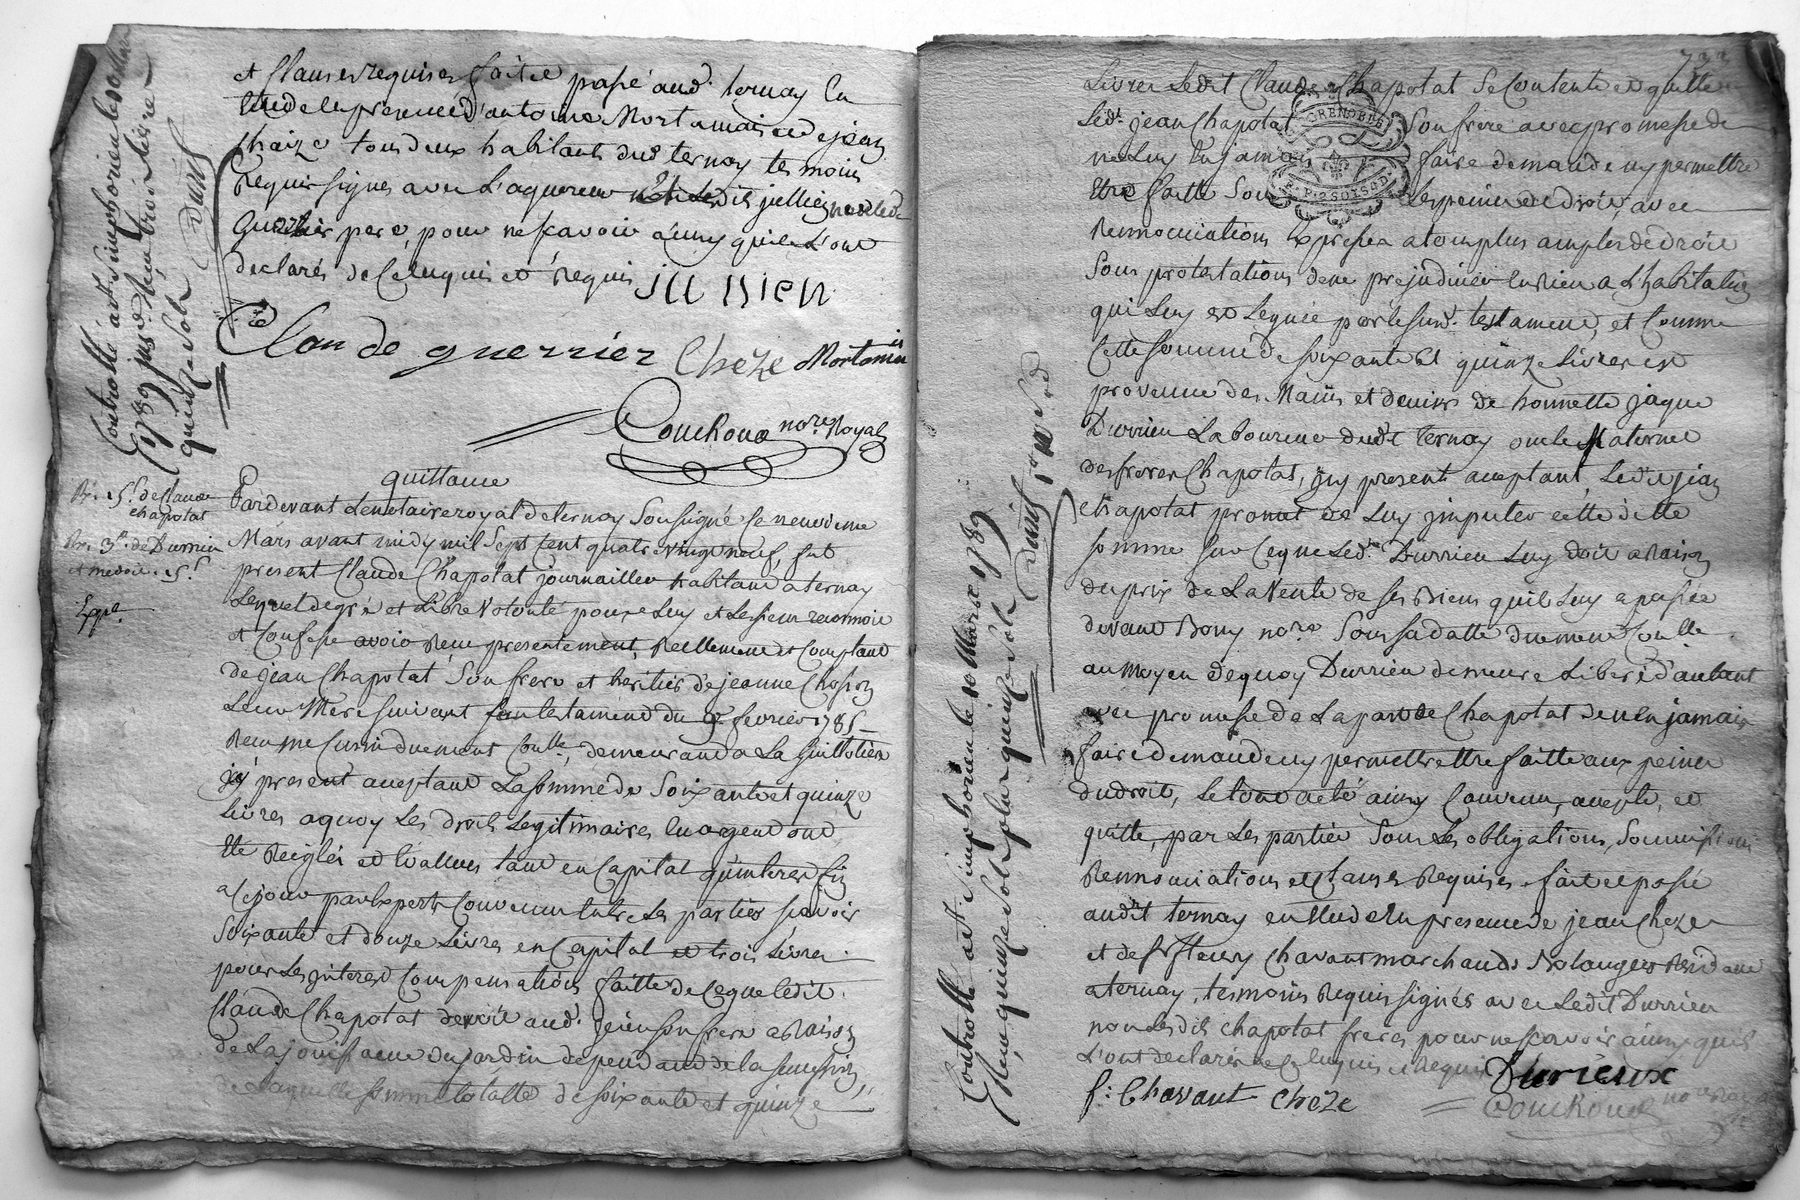 et Clauses requises fait et passé aud. ternay En
Etude En presence d'antoine Mortamais et de jean
Chaize tous deux habitants dud ternay temoins
Requis signés avec L'aquereur Et Ledit jullien non led
Guerrier pere, pour ne scavoir ainsy quil L'ont
declarés de Ce Enquis et Requis jullien
Claude guerrier Cheze Mortamais
Couchoud nore. Royal
Controllé à st. simphorien le 10 Mars
1789
quinze sols
quittance
Ré. 15s. de Claude
chapotat
Ré. 3s. de Durrieu
Expé.
Pardevant Le notaire royal de ternay Soussigné Le neuvieme
Mars avant midy mil Sept Cent quatrevingt neuf, fut
present Claude Chapotat journaillier habitant a ternay
Lequel de gré et Libre Volonté pour Luy et Les sien reconnoit
et Confesse avoir Reçu presentement, Reellement et Comptant
de jean Chapotat Son frere et heritier de jeanne
Leur Mere suivant Son testament du 9 fevrier 1785
Reçu me Cursin duement Coulle, demeurant a La Guillotière
icy present aceptant La somme de Soixante et quinze
Livres a quoy Les droits Legitimaires En argent ont
Eté Reiglés et Evallués tant en Capital qu'interest
a Ce jour par Expert Convenu Entre Les parties scavoir
Soixante et douze Livres en Capital et trois Livres
pour Les jnterest Compensation faitte de Ceque Ledit
Claude Chapotat devoit aud. jean son frere a Raison
de La jouissance du jardin dependant de la succession,
de Laquelle somme totalle de soixante et quinze
Livres Ledit Claude Chapotat Se Contente et quitte
Led. jean Chapotat Son frere avec promesse de
ne Luy En jamais faire demande ny permettre
Etre faitte Sous Les peines de droit, avec
Rennonciations Expresses a tout plus amples de droit
Sous protestations de ne prejudicier En Rien a L'habitation
qui Luy est Leguée par le sud. testament, et Comme
Cette somme de soixante Et quinze Livres est
provenue des Mains et deniers de honnette jaque
Durrieu Laboureur dudt ternay oncle Maternel
des freres Chapotat, jcy present aceptant, Ledit jean
Chapotat promet de Luy jmputer cette ditte
somme sur Ceque Led. Durrieu Luy doit a Raison
du prix de La Vente de ses Biens quil Luy a passée
devant Bouy nore. Sous sa datte duement Coulle
au Moyen dequoy Durrieu demeure Liberé d'autant
avec promesse de La part de Chapotat de n'En jamais
faire demande ny permettre être faitte aux peines
du droit, Le tout a été ainsy Convenu, accepté, et
quitté, par Les parties Sous Les obligations, Soumissions
Rennonciations et Clauses Requises. fait et passé
audit ternay en Etude En presence de jean Cheze
et de françois Chavant marchands Bolangers Residant
a ternay, temoins Requis signés avec Ledit Durrieu
non Lesdits chapotat freres pour ne scavoir ainsy quils
L'ont declarés de Ce Enquis et Requis Durieux
f: Chavant Cheze Couchoud nore royal
Controllé a st. simphorien le 10 Mars 1789
Reçu quinze sols
GRENOBLE